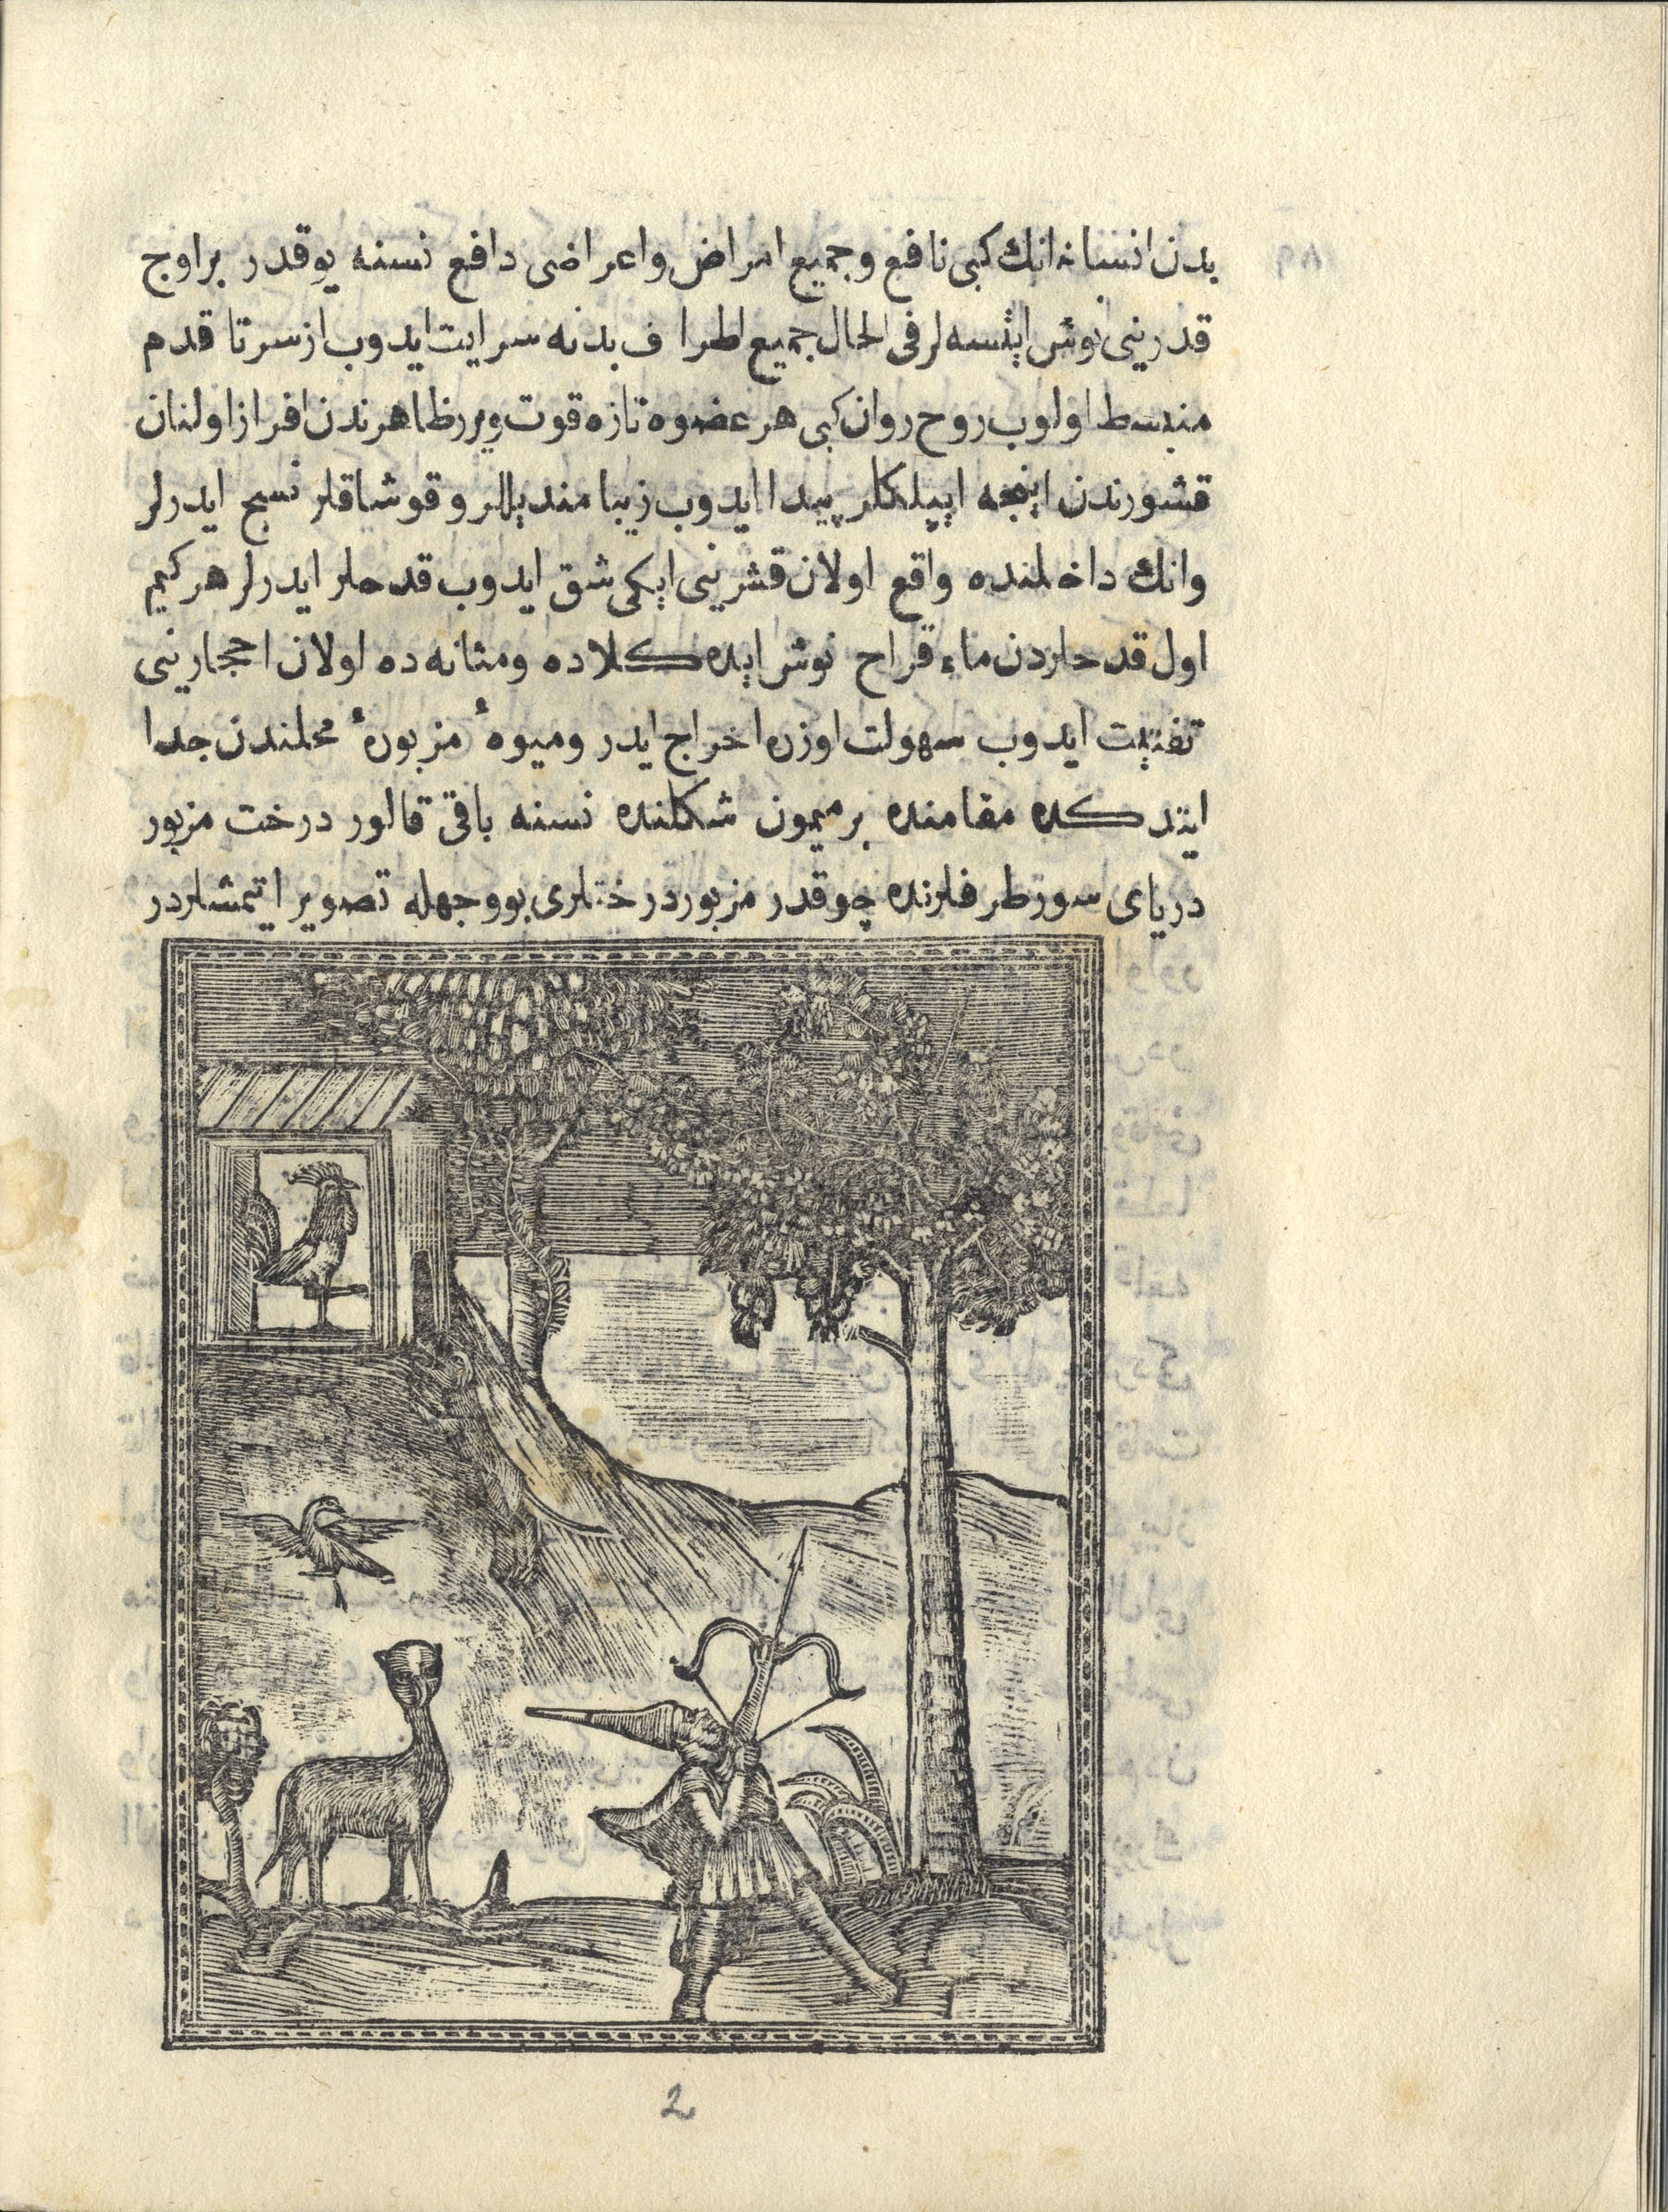 بدن انسانه انك كبی نافع وجمیع امراض واعراضی دافع نسنه یوقدر براوج
قدرینی نوش ایتسه لر فی الحال جمیع اطراف بدنه سرایت ایدوب از سر تا قدم
منبسط اولوب روح روان كبی هر عضوه تازه قوت ویرر ظاهرندن افراز اولنان
قشورندن اینجه ایپلكلر پیدا ایدوب زیبا مندیللر وقوشاقلر نسج ایدرلر
وانك داخلنده واقع اولان قشرینی ایكی شق ایدوب قدحلر ایدرلر هر كیم
اول قدحلردن ماء قراح نوش ایده كلاده ومثانه ده اولان احجارینی
تفتیت ایدوب سهولت اوزره اخراج ایدر ومیوهٔ مزبورهٔ محلندن جدا
ایتدكده مقامنده بر میمون شكلنده نسنه باقی قالور درخت مزبور
دریای سور طرفلرنده چوقدر مزبور درختلری بو وجهله تصویر ایتمشلردر
2